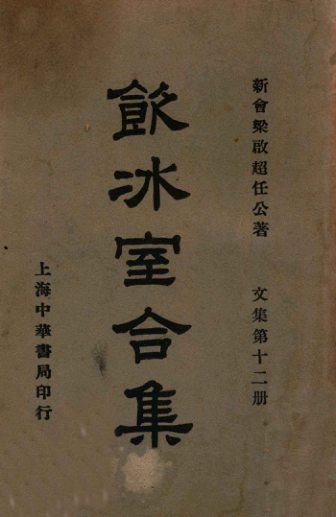 新會梁啟超任公著　文集第十二册
飲冰室合集
上海中華書局印行